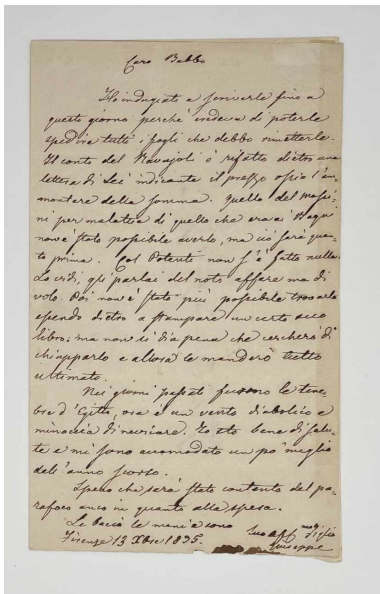 Caro Babbo
Ho indugiato a scriverle fino a
questo giorno perchè credeva di poterle
spedire tutti i fogli che debbo rimetterle.
Il conto del Navajoli è rifatto dietro una
lettera di Lei indicante il prezzo ossia l'am-
montare della somma. Quello del Masi-
ni per malatia di quello che era ai Bagni
non è stato possibile averlo, ma ciò sarà quan-
to prima. Col Potenti non s'è fatto nulla.
Lo vidi, gli parlai del noto affare ma di
volo. Poi non è stato più possibile trovarlo
essendo dietro a stampare un certo suo
libro: ma non si dia pena che cercherò di
chiapparlo e allora le manderò tutto
ultimato.
Nei giorni passati furono le tene-
bre d'Egitto, ora è un vento diabolico e
minaccia di nevicare. Io sto bene di salu-
te e mi sono accomodato un po' meglio
dell'anno scorso.
Spero che sarà stato contento del pa-
rafoco anco in quanto alla spesa.
Le bacio le mani e sono
Firenze 13 Xbre 1835.
Suo aff.mo figlio
Giuseppe